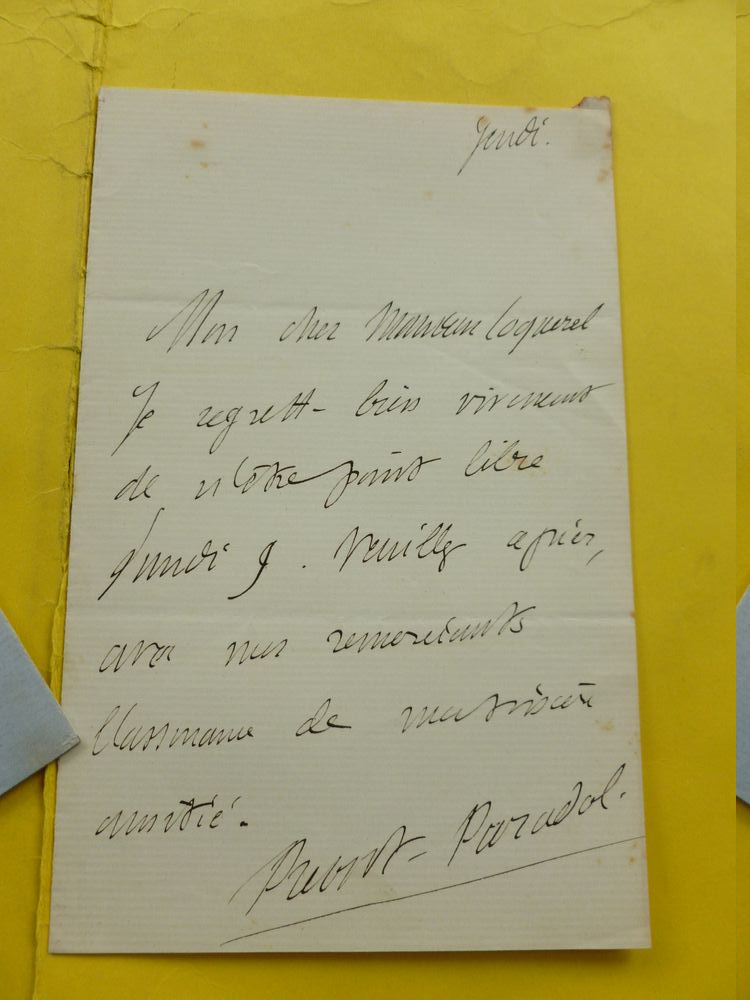 Jeudi.
Mon cher Monsieur Coquerel
Je regrette bien vivement
de n'être point libre
lundi 9. Veuillez agréer,
avec mes remerciements
l'assurance de ma sincère
amitié.
Prevost-Paradol.